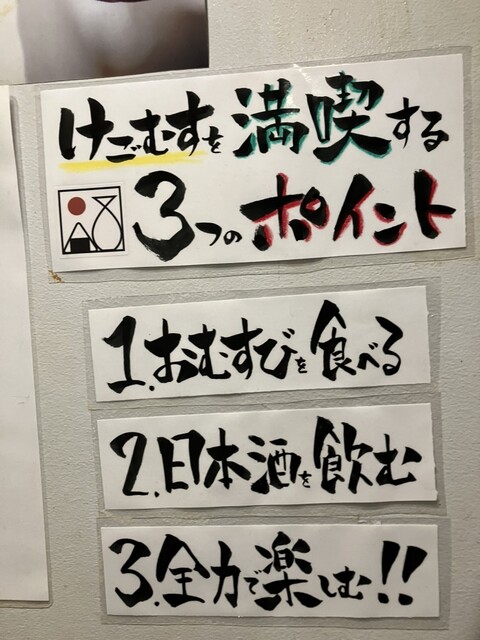 けごむすを満喫する
3つのポイント
1.おむすびを食べる
2.日本酒を飲む
3.全力で楽しむ!!